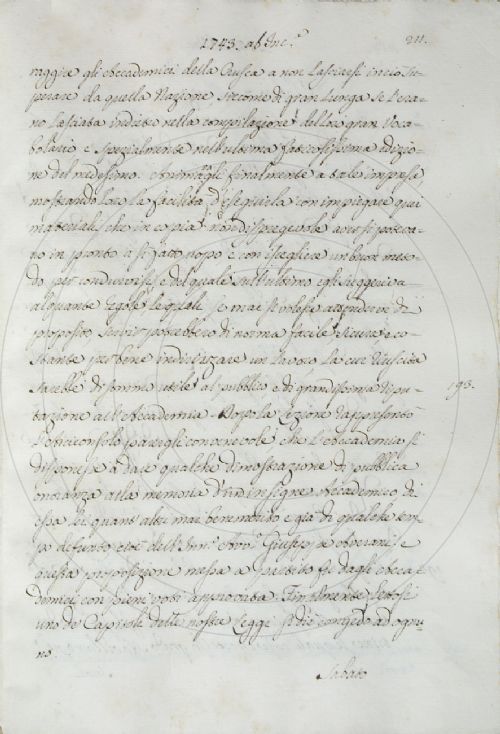 1743. ab Inc.e
211.
raggire gli Accademici della Crusca a non lasciarsi in ciò su-
perare da quella Nazione, siccome di gran lunga se l'era-
no lasciata indietro nella compilazione del loro gran Voca-
bolario e spezialmente nell'ultima faticosissima edizio-
ne del medesimo. Animogli finalmente a tale impresa
mostrando loro la facilità d'eseguirla con impiegare quei
materiali, che in copia non dispregevole aver si poteva-
no in pronto a sì fatto uopo e con iscegliere un buon meto-
do per condurvisi, e del quale sull'ultimo egli suggerì
alquante regole le quali, se mai si volesse attendere di
proposito, servir potrebbero di norma facile sicura e co-
stante per bene indirizzare un lavoro la cui riuscita
sarebbe di sommo utile al pubblico e di grandissima ripu-
tazione all'Accademia. Dopo la Lezione rappresentò
193.
l'Arciconsolo parergli convenevole che l'Accademia si
disponesse a dare qualche dimostrazione di pubblica
onoranza alla memoria d'un insigne Accademico di
essa lei quant'altri mai benemerito e già di qualche tem-
po defunto cioè dell'Ill. Giuseppe Averani, e
questa proposizione messa a partito fu dagli Acca-
demici con pieni voti approvata. Finalmente lettosi
uno de Capitoli delle nostre Leggi si diè congedo ad ognu-
no.
Sabato